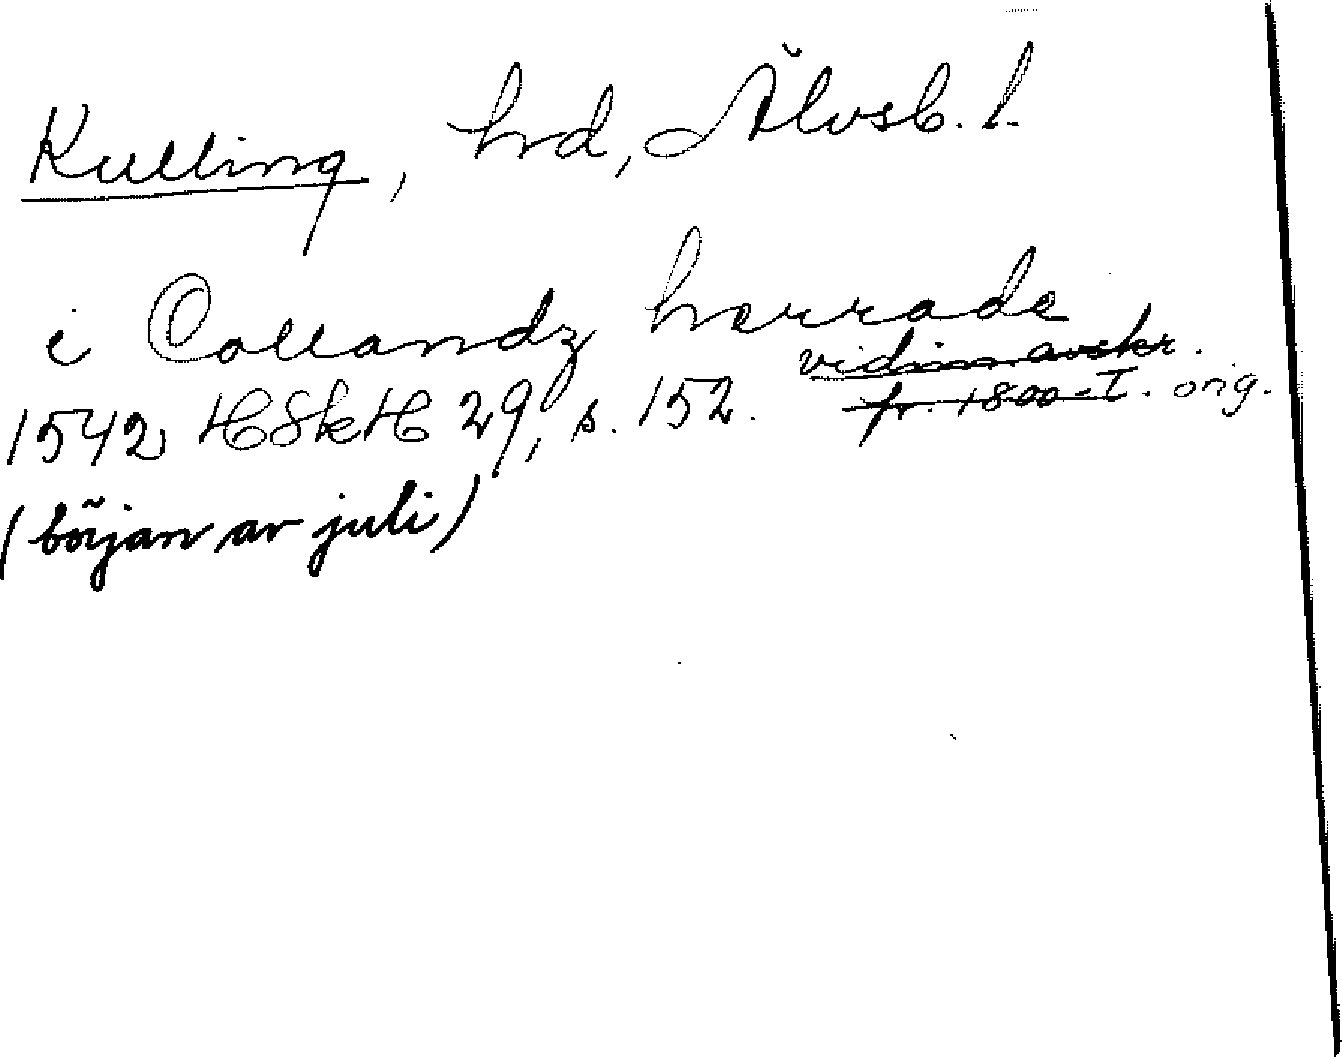 Kulling, hrd, Älvsb. l.
i Collandz herrade
vidim. avskr.
1542 HSkH 29, s. 152. fr. 1800-T. orig.
(början av juli)